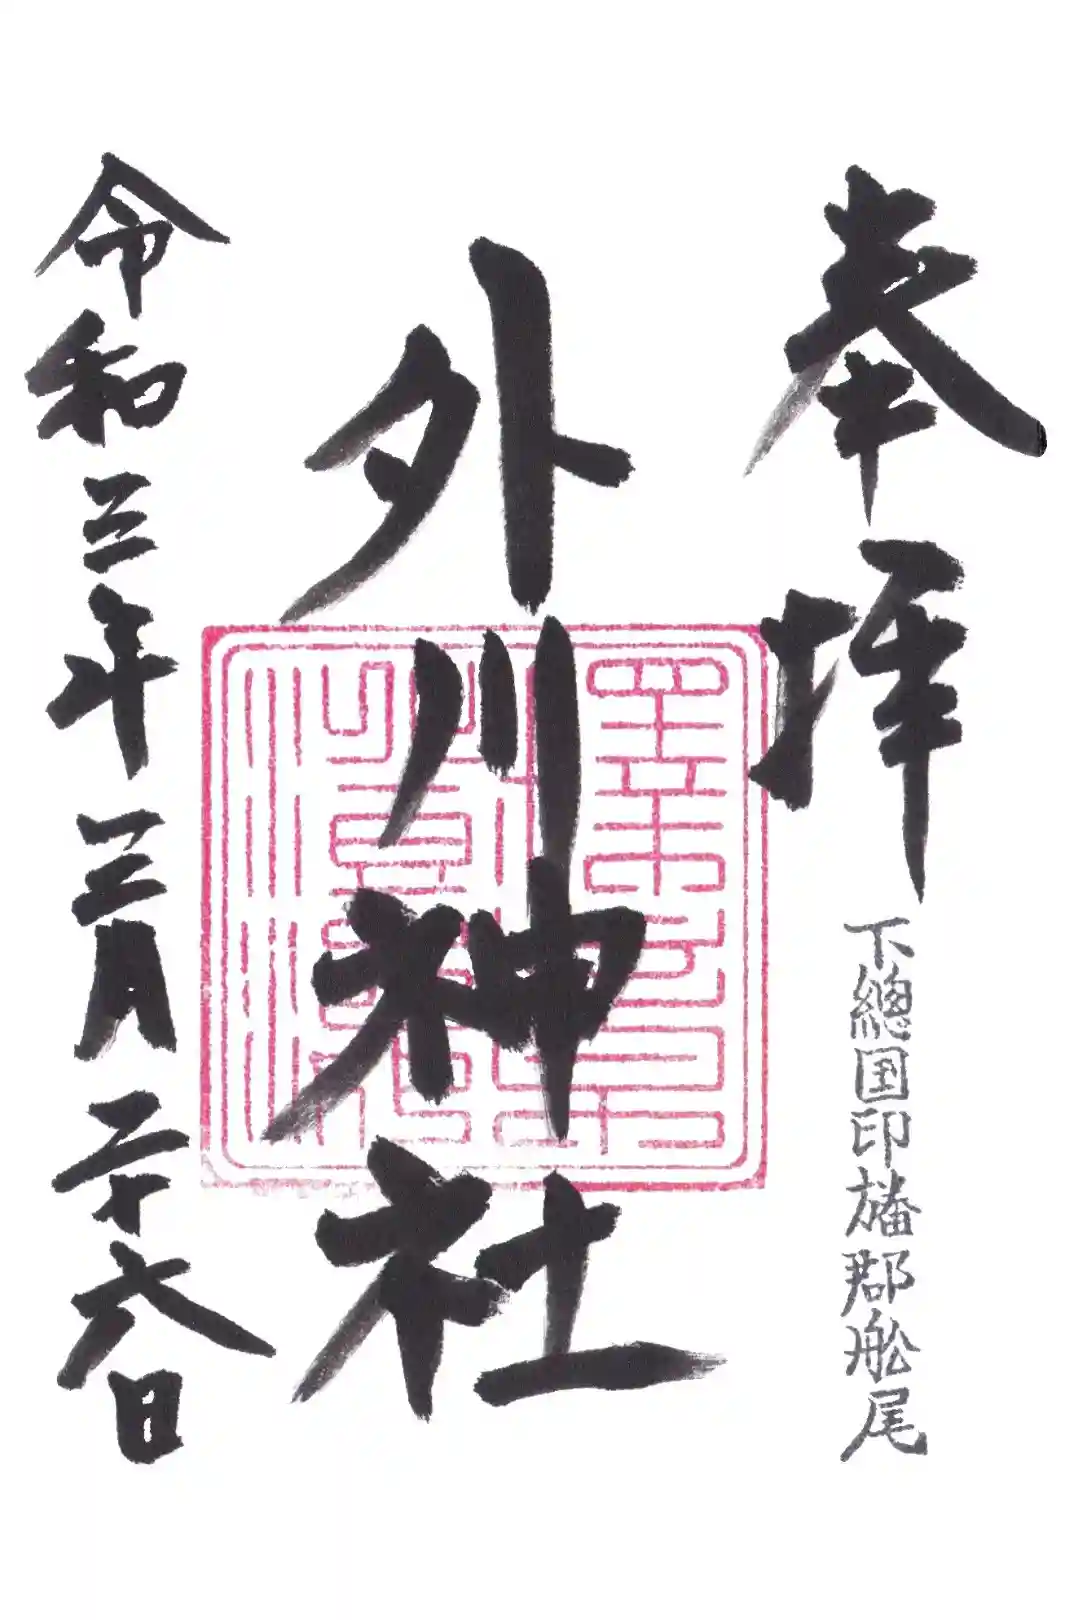 奉拝
下總国印旛郡舩尾
外川神社
令和三年三月二十六日